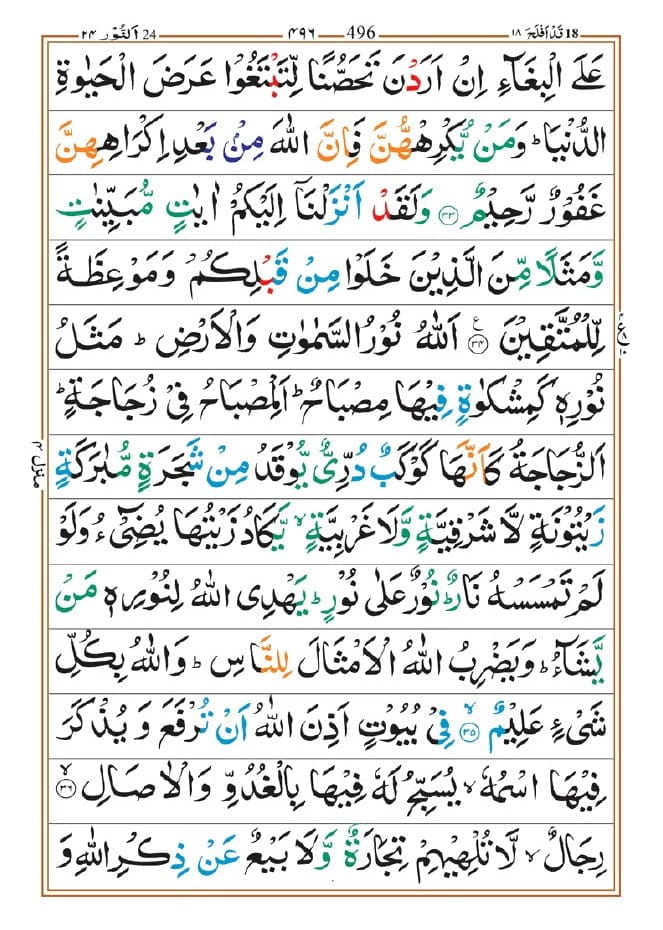 18 قَدْ اَفْلَحَ ١٨ 496 ٤٩٦ 24 اَلنُّوْر ٢٤
عَلَى الْبِغَآءِ اِنْ اَرَدْنَ تَحَصُّنًا لِّتَبْتَغُوْا عَرَضَ الْحَيٰوةِ
الدُّنْيَا ؕ وَمَنْ يُّكْرِهْهُّنَّ فَاِنَّ اللّٰهَ مِنْۢ بَعْدِ اِكْرَاهِهِنَّ
غَفُوْرٌ رَّحِيْمٌ ﴿٣٣﴾ وَلَقَدْ اَنْزَلْنَاۤ اِلَيْكُمْ اٰيٰتٍ مُّبَيِّنٰتٍ
وَّمَثَلًا مِّنَ الَّذِيْنَ خَلَوْا مِنْ قَبْلِكُمْ وَمَوْعِظَةً
لِّلْمُتَّقِيْنَ ﴿٣٤﴾ ع اَللّٰهُ نُوْرُ السَّمٰوٰتِ وَالْاَرْضِ ؕ مَثَلُ
نُوْرِهٖ كَمِشْكٰوةٍ فِيْهَا مِصْبَاحٌ ؕ اَلْمِصْبَاحُ فِيْ زُجَاجَةٍ ؕ
اَلزُّجَاجَةُ كَاَنَّهَا كَوْكَبٌ دُرِّيٌّ يُّوْقَدُ مِنْ شَجَرَةٍ مُّبٰرَكَةٍ
زَيْتُوْنَةٍ لَّا شَرْقِيَّةٍ وَّلَا غَرْبِيَّةٍ ۙ يَّكَادُ زَيْتُهَا يُضِيْٓءُ وَلَوْ
لَمْ تَمْسَسْهُ نَارٌ ؕ نُوْرٌ عَلٰى نُوْرٍ ؕ يَهْدِى اللّٰهُ لِنُوْرِهٖ مَنْ
يَّشَآءُ ؕ وَيَضْرِبُ اللّٰهُ الْاَمْثَالَ لِلنَّاسِ ؕ وَاللّٰهُ بِكُلِّ
شَيْءٍ عَلِيْمٌ ۙ﴿٣٥﴾ فِيْ بُيُوْتٍ اَذِنَ اللّٰهُ اَنْ تُرْفَعَ وَ يُذْكَرَ
فِيْهَا اسْمُهٗ ۙ يُسَبِّحُ لَهٗ فِيْهَا بِالْغُدُوِّ وَالْاٰصَالِ ۙ﴿٣٦﴾
رِجَالٌ ۙ لَّا تُلْهِيْهِمْ تِجَارَةٌ وَّلَا بَيْعٌ عَنْ ذِكْرِ اللّٰهِ وَ
منزل ٤